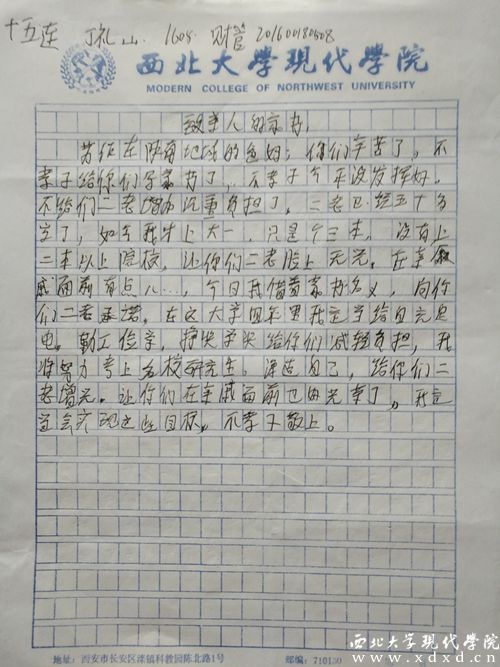 十五连 1605 财管 20160180508
西北大学现代学院
MODERN COLLEGE OF NORTHWEST UNIVERSITY
致亲人的家书
劳作在陕南地域的爸妈：你们辛苦了，不
孝子给你们写家书了，不孝子今年没发挥好，
不给们二老增加沉重负担了。二老已经五十多
岁了，如今我才上大一，只是个三本，没有上
二本以上院校，让你们二老脸上无光。在亲戚
面前有点儿…，今日我借着家书名义，向你
们二老承诺。在这大学四年里我定学给自己充
电。勤工俭学，给你们减轻负担，我
将努力考上名校研究生。深造自己，给你们二
老增光。让你们在亲戚面前也如光荣了。我
定会实现这些目标。不孝子敬上。
地址：西安市长安区滦镇科教园陈北路1号 邮编：710130
西北大学现代学院
www.xdxd.cn